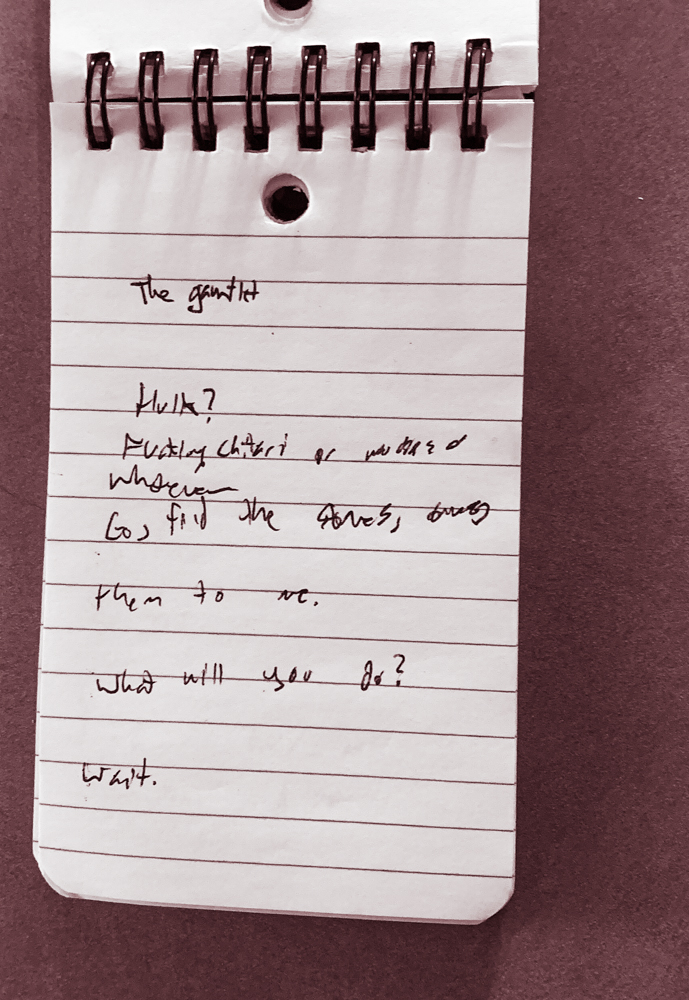 The gauntlet
Hulk?
Fucking chitari or
Whoever
Go, find the stones,
them to me.
What will you do?
Wait.